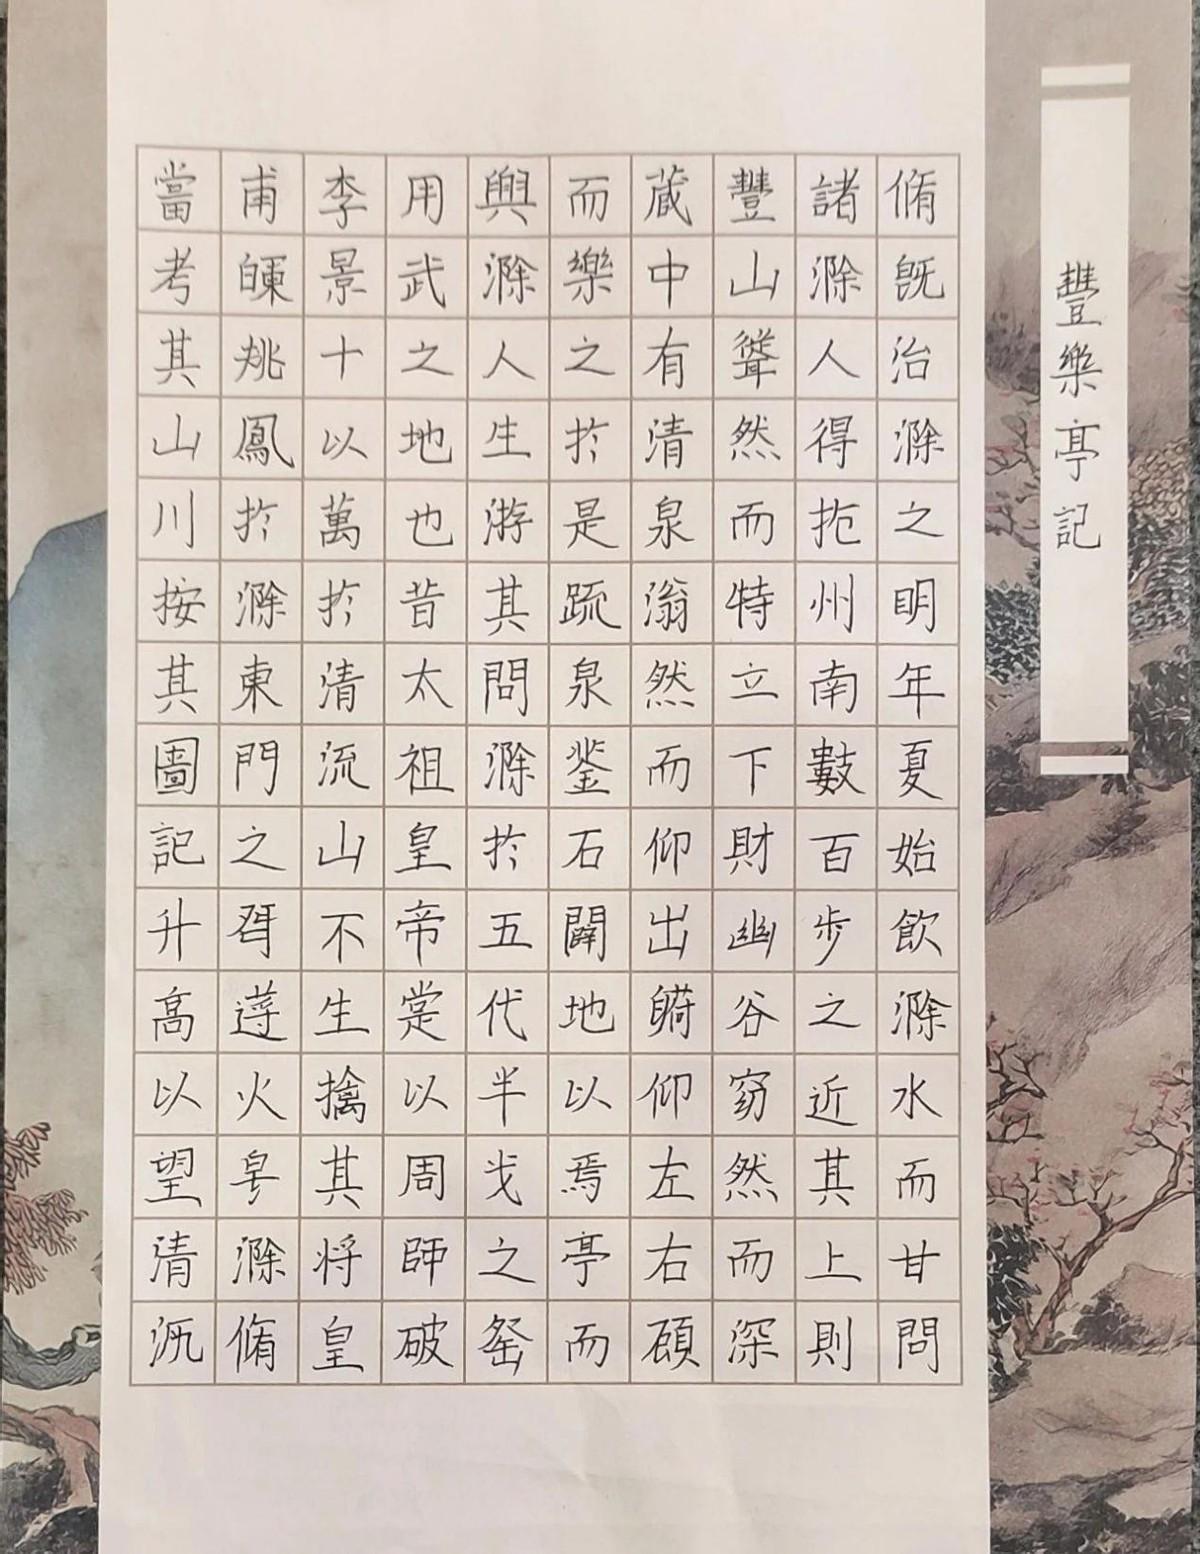 豐樂亭記
脩既治滁之明年夏始飲滁水而甘問
諸滁人得扵州南數百步之近其上則
豐山聳然而特立下財幽谷窈然而深
蔵中有清泉滃然而仰出俯仰左右顧
而樂之扵是疏泉鑿石闢地以焉亭而
與滁人生游其問滁扵五代半戈之
用武之地也昔太祖皇帝甞以周師破
李景十以萬扵清流山不生擒其将皇
甫暉姚鳳扵滁東門之火滁脩
當考其山川按其圖記升高以望清流